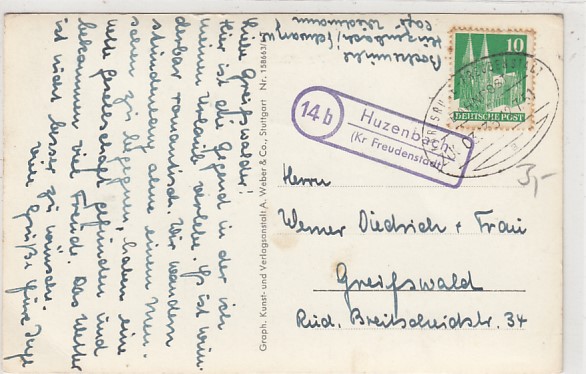 Liebe Greifswalder!
Hier ist die Gegend in der ich
meinen Urlaub verlebe. Es ist wun-
derbar romantisch. Wir wandern
stundenlang, ohne einem Men-
schen zu begegnen, haben eine
nette Gesellschaft gefunden und
bekommen viel Freude. Das Wetter
ist nicht besser zu wünschen.
Viele Grüße Eure Inge
Graph. Kunst- und Verlagsanstalt A. Weber & Co., Stuttgart Nr. 158663/
Huzenbach/Schwarzw.
10
DEUTSCHE POST
14b
Huzenbach
(Kr Freudenstadt)
3,-
Herrn
Werner Diedrich + Frau
Greifswald
Rud. Breitscheidstr. 34